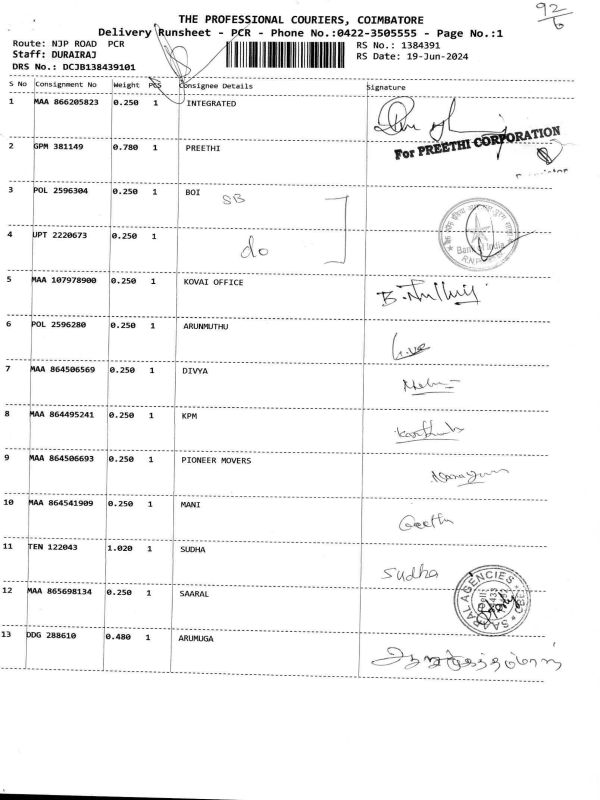 92/6
THE PROFESSIONAL COURIERS, COIMBATORE
Delivery Runsheet - PCR - Phone No.:0422-3505555 - Page No.:1
Route: NJP ROAD PCR RS No.: 1384391
Staff: DURAIRAJ RS Date: 19-Jun-2024
DRS No.: DCJB138439101
S No Consignment No Weight PCS Consignee Details Signature
1 MAA 866205823 0.250 1 INTEGRATED
For PREETHI CORPORATION
2 GPM 381149 0.780 1 PREETHI
3 POL 2596304 0.250 1 BOI SB
Bank of India
4 UPT 2220673 0.250 1 do
5 MAA 107978900 0.250 1 KOVAI OFFICE
6 POL 2596280 0.250 1 ARUNMUTHU
7 MAA 864506569 0.250 1 DIVYA
8 MAA 864495241 0.250 1 KPM
9 MAA 864506693 0.250 1 PIONEER MOVERS
10 MAA 864541909 0.250 1 MANI Geetha
11 TEN 122043 1.020 1 SUDHA Sudha
12 MAA 865698134 0.250 1 SAARAL
SAARAL AGENCIES CBE
13 DDG 288610 0.480 1 ARUMUGA